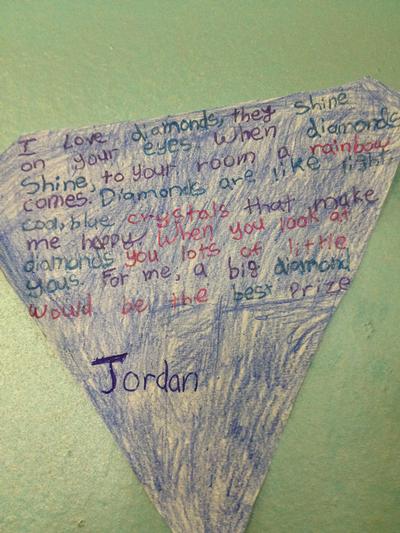 I Love diamonds, they shine
on your eyes. When diamonds
shine, to your room a rainbow
comes. Diamonds are like light
cool, blue crystals that make
me happy. When you look at
diamonds you lots of little
yous. For me, a big diamond
would be the best prize
Jordan